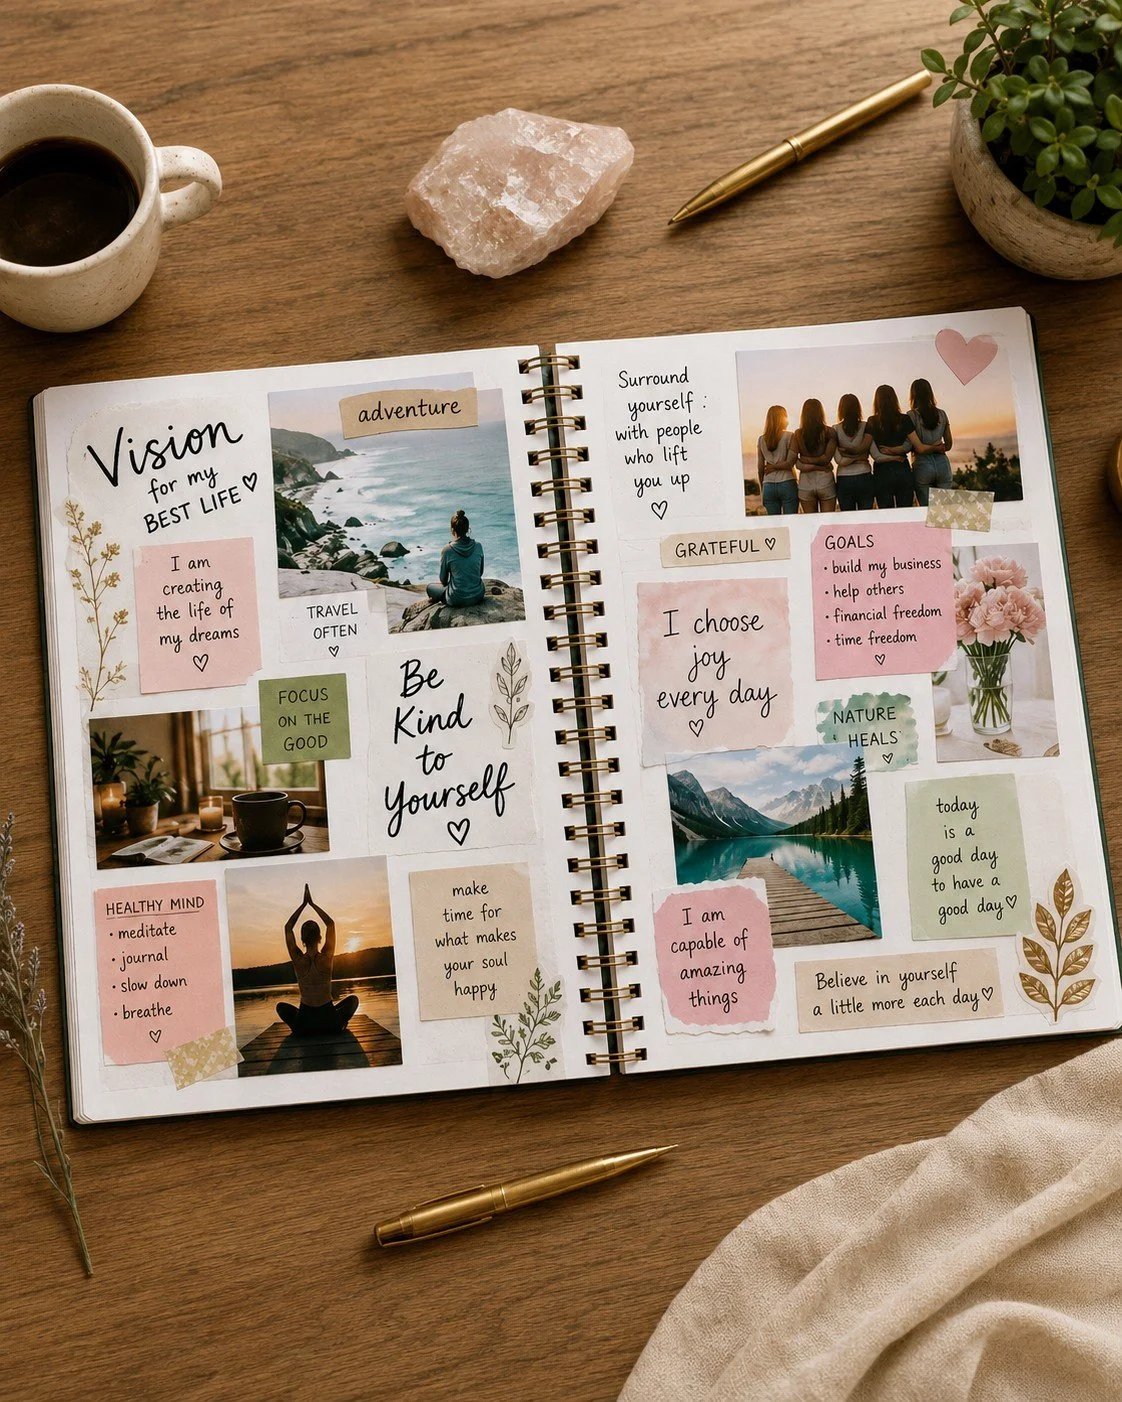 Vision
for my
BEST LIFE♡
adventure
I am
creating
the life of
my dreams
♡
TRAVEL
OFTEN
♡
FOCUS
ON THE
GOOD
Be
Kind
to
Yourself
♡
HEALTHY MIND
• meditate
• journal
• slow down
• breathe
♡
make
time for
what makes
your soul
happy
Surround
yourself :
with people
who lift
you up
♡
GRATEFUL ♡
GOALS
• build my business
• help others
• financial freedom
• time freedom
♡
I choose
joy
every day
♡
NATURE
HEALS
♡
today
is a
good day
to have a
good day♡
I am
capable of
amazing
things
Believe in yourself
a little more each day♡